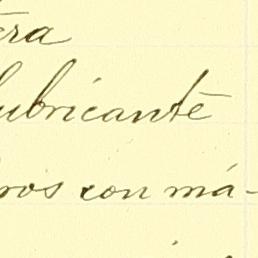 era
lubricante
ros con má-